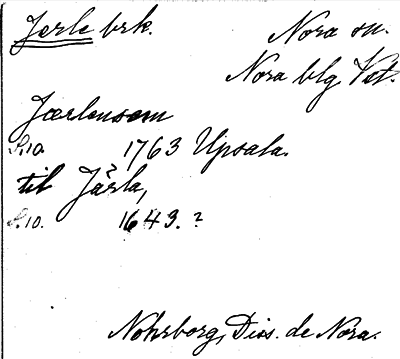 Jerle brk. Nora sn.
Nora blg Vst.
Jærlensem
S.10. 1763 Upsala.
til Järla,
S.10. 1643.?
Nohrborg, Diss. de Nora.